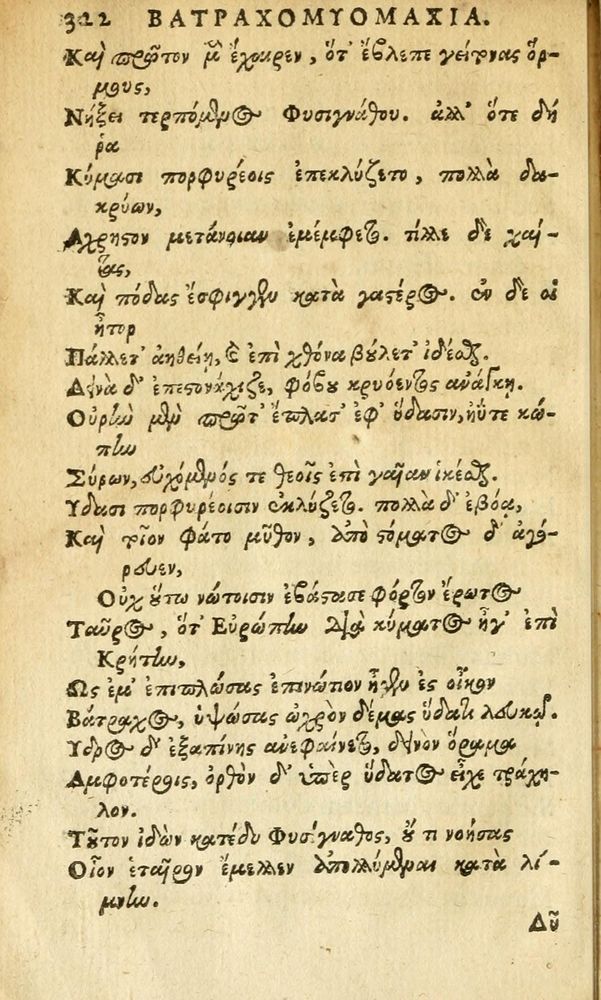 322 ΒΑΤΡΑΧΟΜΥΟΜΑΧΙΑ.
Καὶ πρῶτον μ̃ ἔχαιρεν, ὅτ' ἔβλεπε γείτονας ὅρ-
μους,
Νήξει τερπόμενος Φυσιγνάθου. ἀλλ' ὅτε δή
ῥα
Κύμασι πορφυρέοις ἐπεκλύζετο, πολλὰ δα-
κρύων,
Αχρηστον μετάνοιαν ἐμέμφετο. τίλλε δὲ χαί-
τας,
Καὶ πόδας ἔσφιγγεν κατὰ γαστέρος. ἐν δέ οἱ
ἦτορ
Πάλλετ' ἀηθείῃ, καὶ ἐπὶ χθόνα βούλετ' ἱδέσθαι.
Δεινὰ δ' ἐπεστονάχιζε, φόβου κρυόεντος ἀνάγκῃ.
Οὐρὴν μὲν πρῶτ' ἔπλασ' ἐφ' ὕδασιν, ἠΰτε κώ-
πην
Σύρων, εὐχόμενός τε θεοῖς ἐπὶ γαῖαν ἱκέσθαι.
Υδασι πορφυρέοισιν ἐκλύζετο. πολλὰ δ' ἐβόα,
Καὶ τοῖον φάτο μῦθον, ἀπὸ στόματος δ' ἀγό-
ρευεν,
Οὐχ οὕτω νώτοισιν ἐβάστασε φόρτον ἔρωτος
Ταῦρος, ὅτ' Εὐρώπην διὰ κύματος ἦγ' ἐπὶ
Κρήτην,
Ως ἐμ' ἐπιπλώσας ἐπινώτιον ἦγεν ἐς οἶκον
Βάτραχος, ὑψώσας ὠχρὸν δέμας ὕδατι λευκῷ.
Υδρος δ' ἐξαπίνης ἀνεφαίνετο, δεινὸν ὅραμα
Αμφοτέροις, ὀρθὸν δ' ὑπὲρ ὕδατος εἶχε τράχη-
λον.
Τοῦτον ἰδὼν κατέδυ Φυσίγναθος, οὔ τι νοήσας
Οἷον ἑταῖρον ἔμελλεν ἀπολλύμεναι κατὰ λί-
μνην.
Δῦ